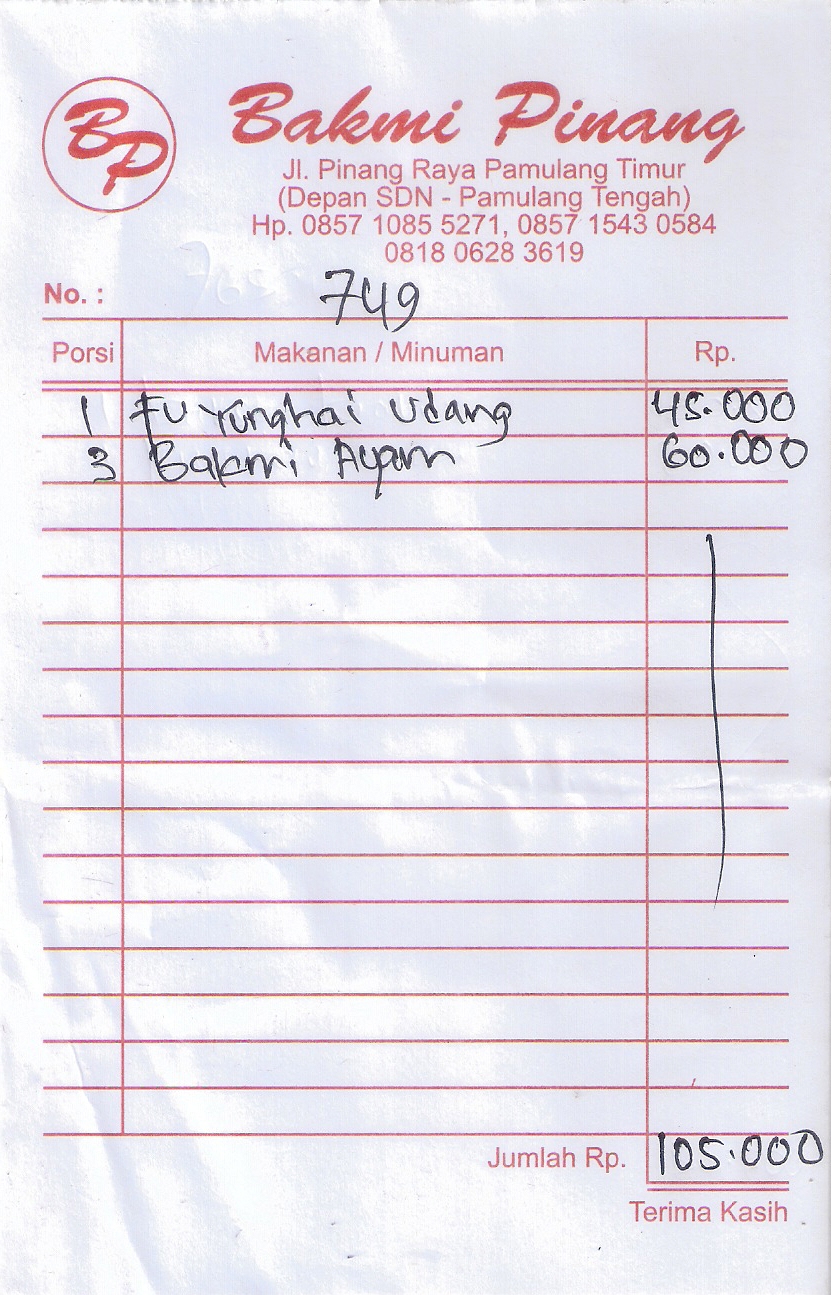 BP
Bakmi Pinang
Jl. Pinang Raya Pamulang Timur
(Depan SDN - Pamulang Tengah)
Hp. 0857 1085 5271, 0857 1543 0584
0818 0628 3619
No. : 749
Porsi Makanan / Minuman Rp.
1 Fu Yunghai Udang 45.000
3 Bakmi Ayam 60.000
Jumlah Rp. 105.000
Terima Kasih